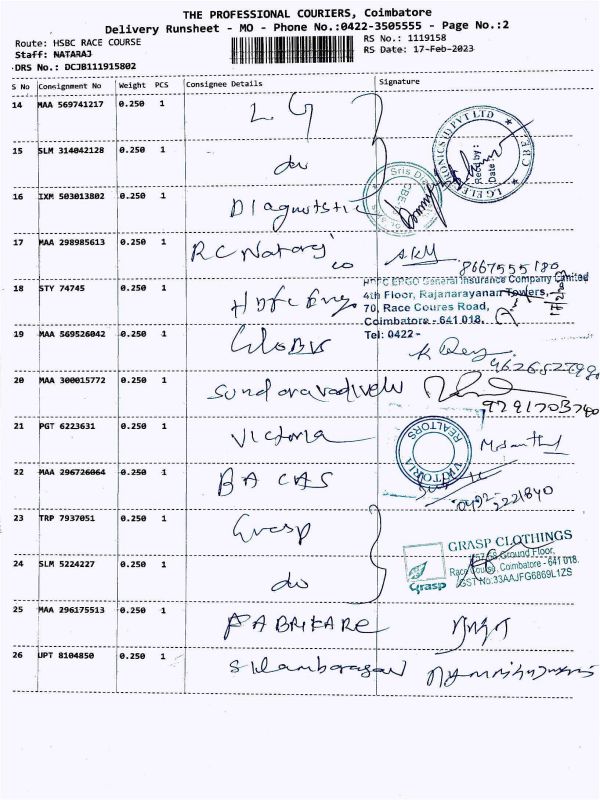 THE PROFESSIONAL COURIERS, Coimbatore
Delivery Runsheet - MO - Phone No.:0422-3505555 - Page No.:2
Route: HSBC RACE COURSE
RS No.: 1119158
Staff: NATARAJ
RS Date: 17-Feb-2023
DRS No.: DCJB111915802
S No Consignment No Weight PCS Consignee Details Signature
14 MAA 569741217 0.250 1 LG
LG ELECTRONICS (I) PVT LTD CBE
Recd by:
Date:
15 SLM 314042128 0.250 1 do
16 IXM 503013802 0.250 1 Diagnoststic
Sris
CBE
17 MAA 298985613 0.250 1 RC Nataraj co AKM
8667555180
18 STY 74745 0.250 1 Hdfc Ergo
HDFC ERGO General Insurance Company Limited
4th Floor, Rajanarayanan Towers,
70, Race Coures Road,
Coimbatore - 641 018.
Tel: 0422-
19 MAA 569526042 0.250 1 Globus
20 MAA 300015772 0.250 1 Sundaravadivelu
9791703740
21 PGT 6223631 0.250 1 Victoria
VIKTORIA REALTORS
22 MAA 296726064 0.250 1 BACAS
2221840
23 TRP 7937051 0.250 1 Grasp
GRASP CLOTHINGS
Ground Floor,
Race Course, Coimbatore - 641 018.
GST No:33AAJFG6869L1ZS
Grasp
24 SLM 5224227 0.250 1 do
25 MAA 296175513 0.250 1 FABRIKARE
26 UPT 8104850 0.250 1 Silambarasan